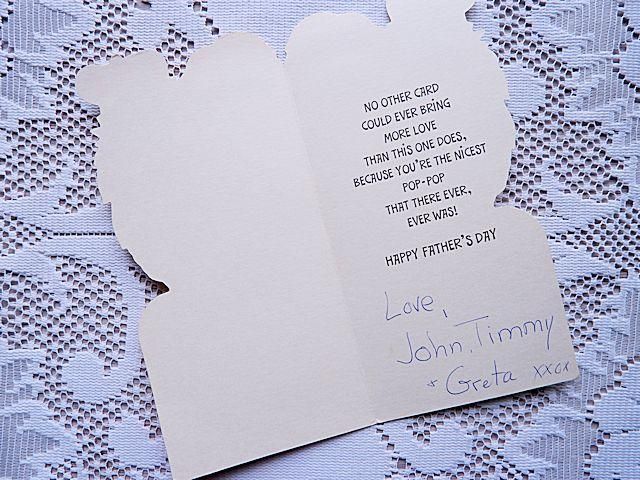 NO OTHER CARD
COULD EVER BRING
MORE LOVE
THAN THIS ONE DOES,
BECAUSE YOU'RE THE NICEST
POP-POP
THAT THERE EVER,
EVER WAS!
HAPPY FATHER'S DAY
Love,
John, Timmy
+ Greta xxox